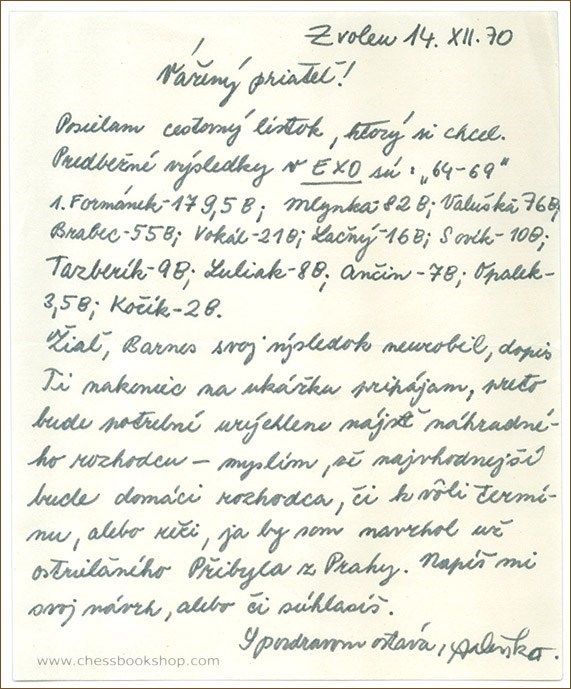 Zvolen 14. XII. 70
Vážený priateľ!
Posielam cestovný lístok, ktorý si chcel.
Predbežné výsledky v EXO sú: „64-69"
1. Formánek-179,5 B; Mlynka-82 B; Valuška 76 B,
Brabec-55B; Vokál-21B; Lačný-16B; Sovík-10B;
Tazberík-9B; Luliak-8B; Ančin-7B; Opalek-
3,5B; Kočík-2B.
Žiaľ, Barnes svoj výsledok neurobil, dopis
Ti nakoniec na ukážku pripájam, preto
bude potrebné urýchlene nájsť náhradné-
ho rozhodcu – myslím, že najvhodnejší
bude domáci rozhodca, či k vôli termí-
nu, alebo reči, ja by som navrhol už
ostrieláného Přibyla z Prahy. Napíš mi
svoj návrh, alebo či súhlasíš.
S pozdravom ostáva,
www.chessbookshop.com